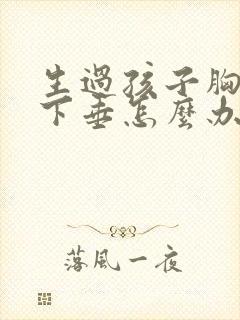 生過孩子胸
下垂怎麼办
落風一夜